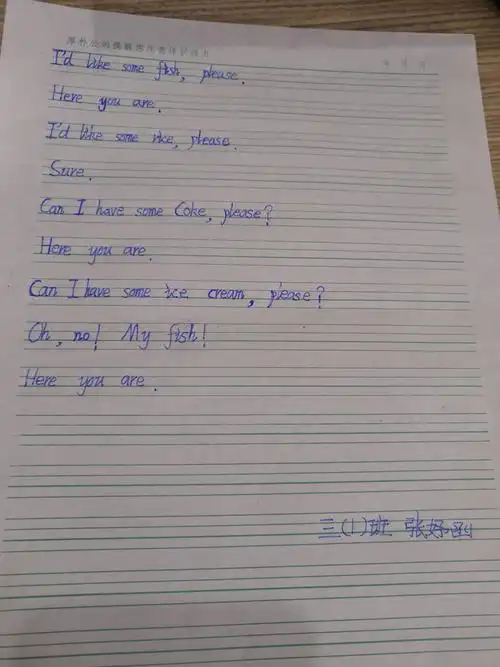 I'd like some fish, please.
Here you are.
I'd like some rice, please.
Sure.
Can I have some Coke, please?
Here you are.
Can I have some ice cream, please?
Oh, no! My fish!
Here you are.
三(1)班 张好